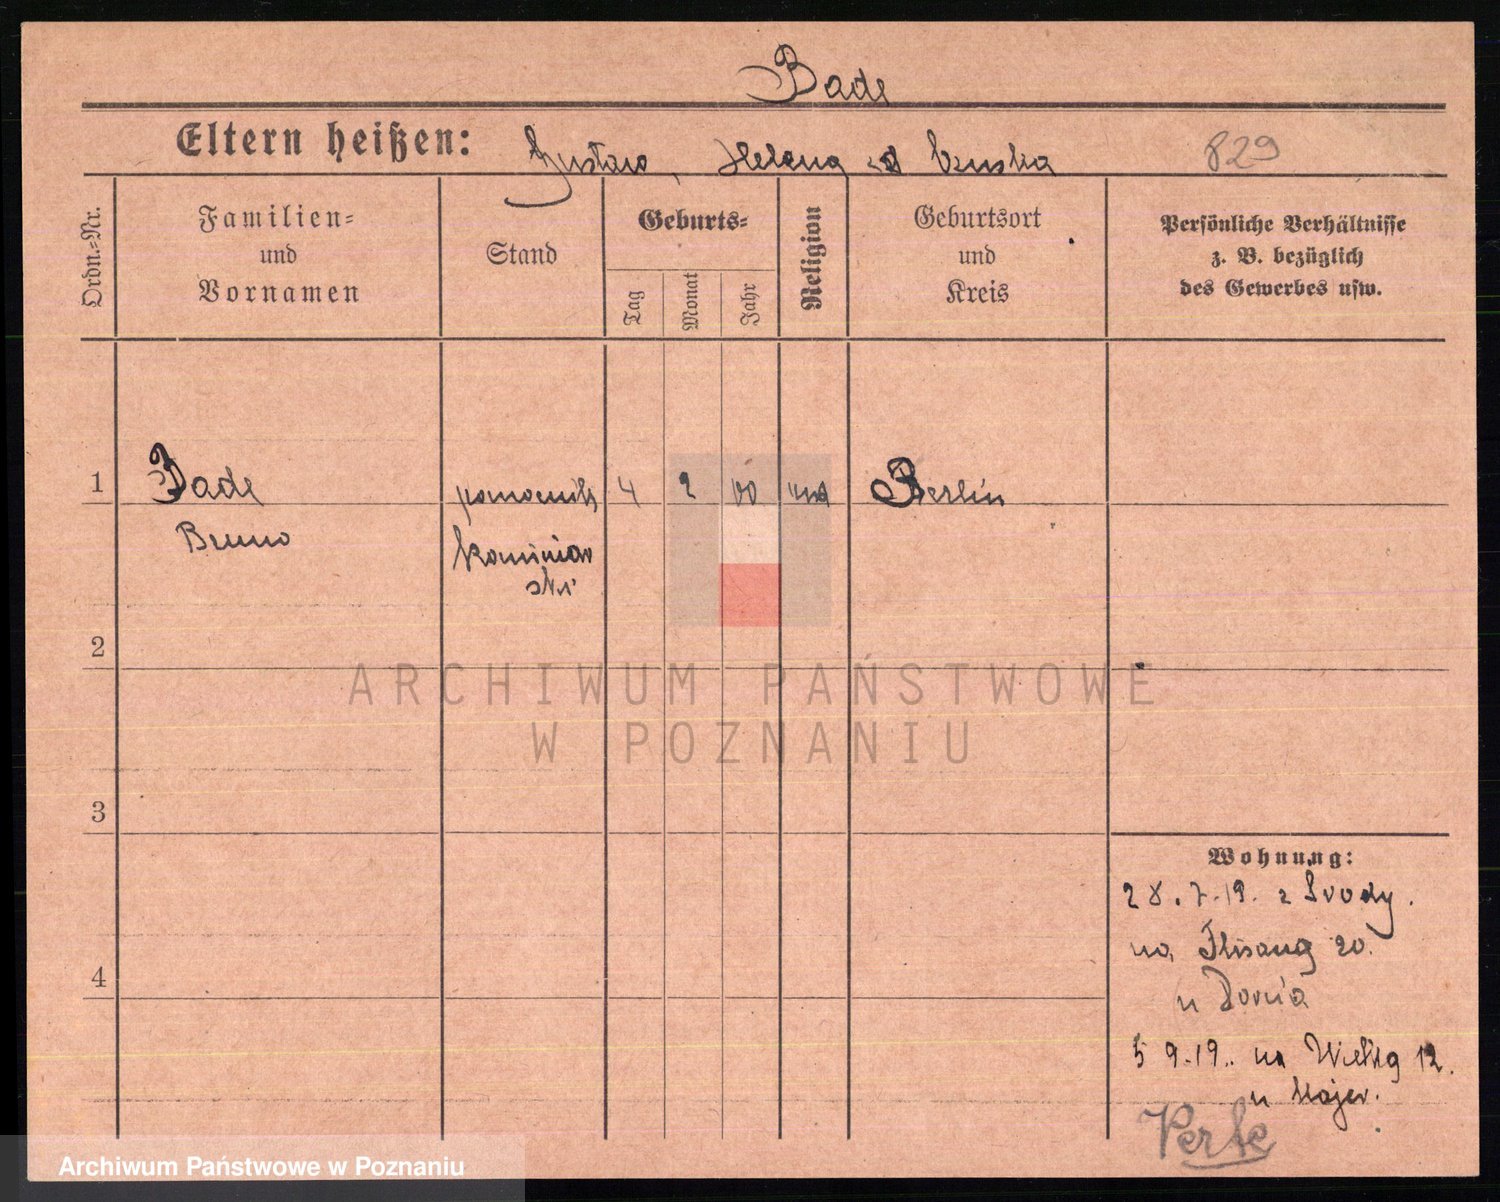 Bade
Eltern heißen: Gustaw, Helena
829
Ordn.=Nr.
Familien=
und
Vornamen
Stand
Geburts=
Tag
Monat
Jahr
Religion
Geburtsort
und
Kreis
Persönliche Verhältnisse
z. B. bezüglich
des Gewerbes usw.
1
Bade
Bruno
pomocnik
kominiar
ski
4
2
00
Berlin
2
3
4
Wohnung:
28.7.19. z Środy.
na 20.
u
5 9.19. na Wielką 12.
u Majer.
ARCHIWUM PAŃSTWOWE
W POZNANIU
Archiwum Państwowe w Poznaniu